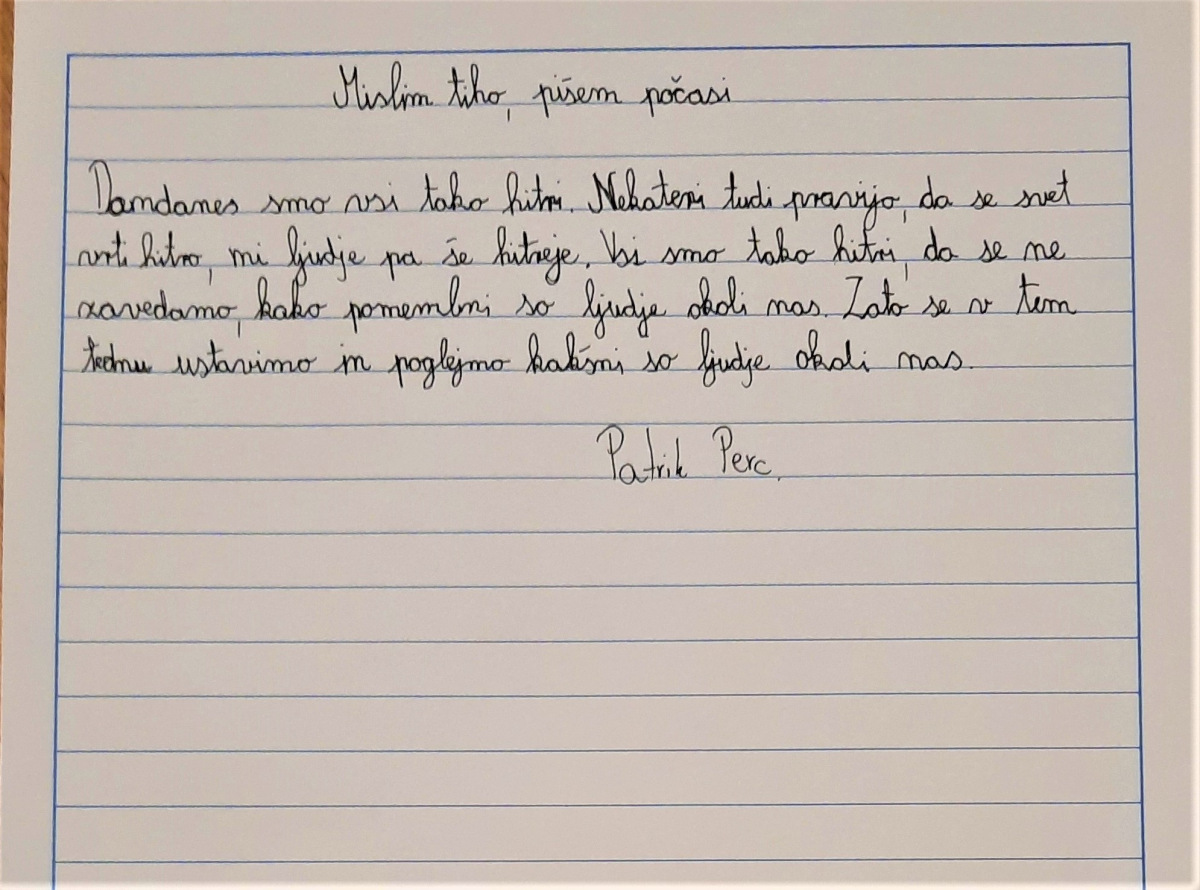 Mislim tiho, pišem počasi
Damdanes smo vsi tako hitri. Nekateri tudi pravijo, da se svet
vrti hitro, mi ljudje pa še hitreje. Vsi smo tako hitri, da se ne
zavedamo, kako pomembni so ljudje okoli nas. Zato se v tem
tednu ustavimo in poglejmo kakšni so ljudje okoli nas.
Patrik Perc.